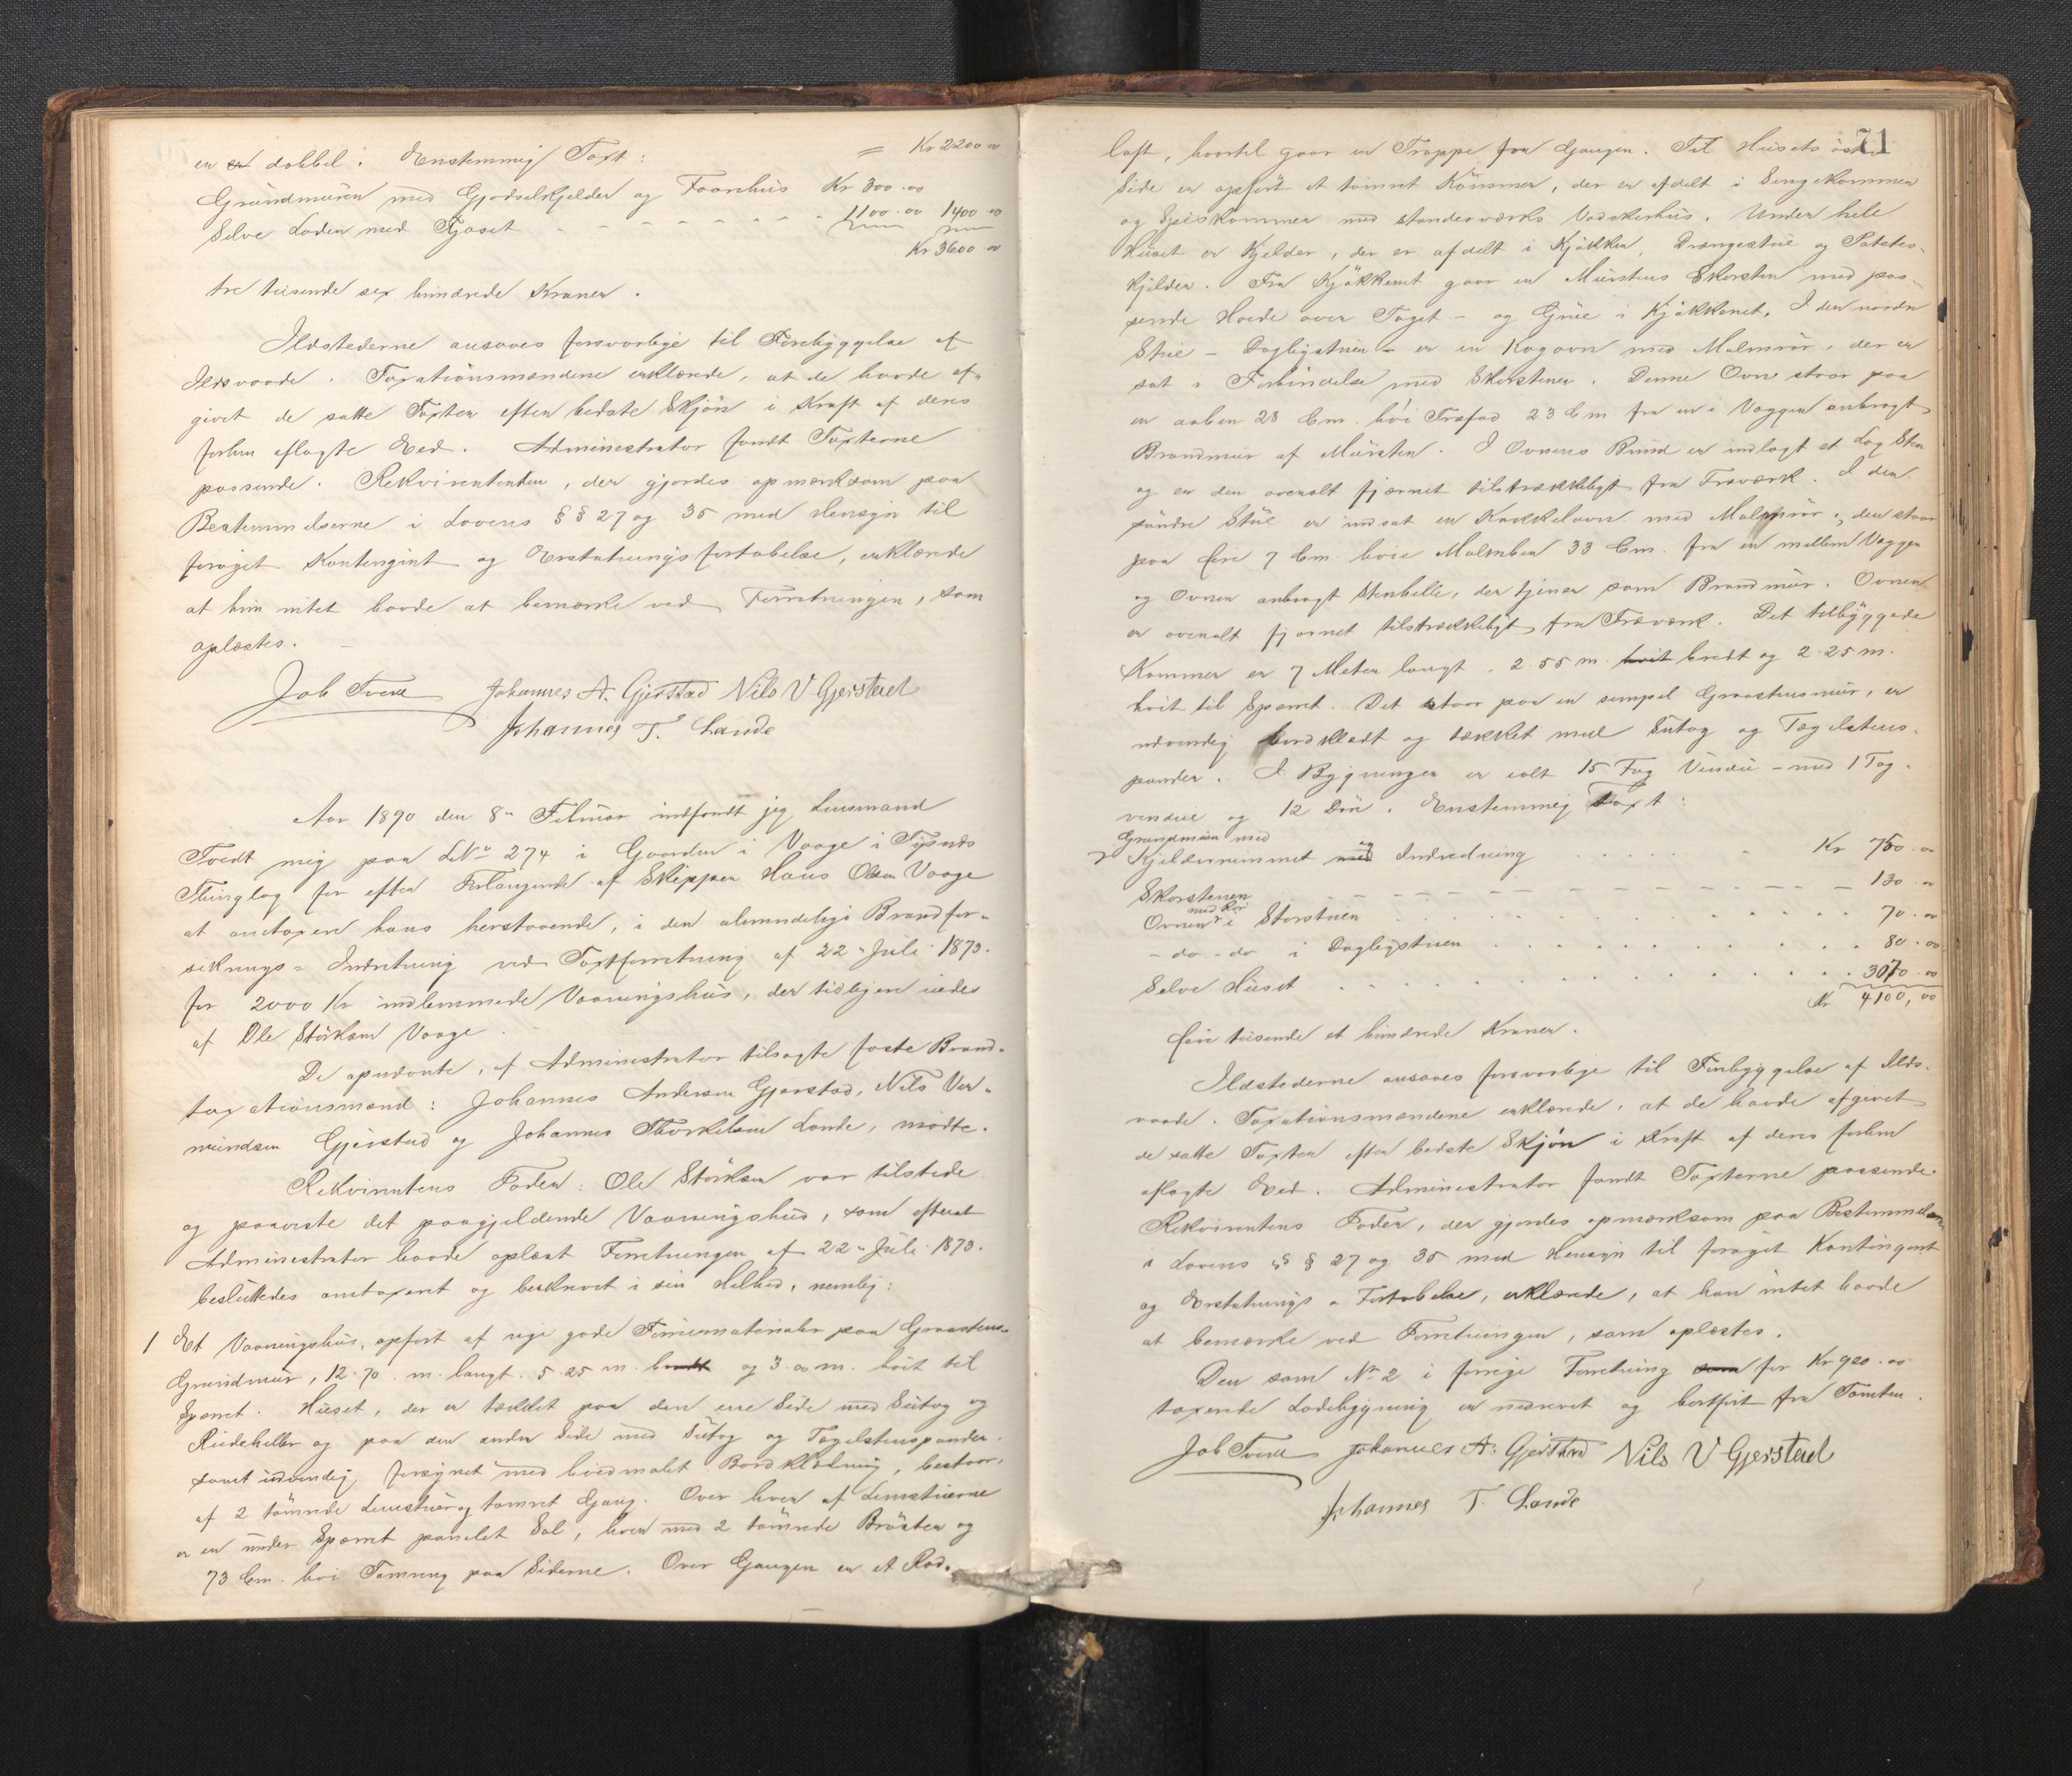 er dobbel. Enstemmig Taxt: = Kr 2200 00
Grundmuren med Gjødselskjelder og Faarehus Kr 300.00
Selve Loden med Fjøset - - - - - - 1100.00 1400 00
Kr 3600 00
tre tusende sex hundrede Kroner.
Ildstederne ansaaes forsvarlige til Forebyggelse af
Ildsvaade. Taxationsmændene erklærede, at de havde af-
givet de satte Taxter efter bedste Skjøn i Kraft af deres
forhen aflagte Eed. Administrator fandt Taxterne
passende. Rekvirentinden, der gjordes opmærksom paa
Bestemmelserne i Lovens §§ 27 og 35 med Hensyn til
forøget Kontingent og Erstatningsfortabelse, erklærede
at hun intet havde at bemærke ved Forretningen, som
oplæstes.
Job Tvedt Johannes A. Gjerstad Nils V Gjerstad
Johannes T. Lande
Aar 1890 den 8de Februar indfandt jeg Lensmand
Tvedt mig paa LNo 274 i Gaarden i Vaage i Tysnes
Thinglag for efter Forlangende af Skipper Hans Olsen Vaage
at omtaxere hans herstaaende, i den almindelige Brandfor-
sikrings-Indretning ved Taxtforretning af 22de Juli 1873.
for 2000 Kr indlemmede Vaaningshus, der tidligere eiedes
af Ole Størksen Vaage.
De opnævnte, af Administrator tilsagte faste Brand-
taxationsmænd: Johannes Andersen Gjerstad, Nils Ver-
mundsen Gjerstad og Johannes Thorkelsen Lande, mødte.
Rekvirentens Fader: Ole Størksen var tilstede
og paaviste det paagjeldende Vaaningshus, som efterat
Administrator havde oplæst Forretningen af 22de Juli 1873.
besluttedes omtaxeret og beskrevet i sin Helhed, nemlig:
1 Et Vaaningshus, opført af nye gode Furumaterialer paa Graastens-
Grundmur, 12.70 m. langt. 5.25 m. bredt og 3.00 m. høit til
Sparret. Huset, der er tækket paa den ene Side med Sutag og
Rudeheller og paa den anden Side med Sutag og Tagelstenspander
samt udvendig forsynet med hvidmalet Bordklædning, bestaar
af 2 tømrede Lemstuer og tømret Gang. Over hver af Lemstuerne
er en under Sparret panelet Sal, hver med 2 tømrede Brøster og
73 Cm. høi Tømring paa Siderne. Over Gangen er et Rod-
71
loft, hvortil gaar en Trappe fra Gangen. Til Husets østre
Side er opført et tømret Kammer, der er afdelt i Sengekammer
og Speiskammer med standerværks Vadskerhus. Under hele
Huset er Kjelder, der er afdelt i Kjøkken, Drængestue og Potetes-
kjelder. Fra Kjøkkenet gaar en Murstens Skorsten med pas-
sende Høide over Taget - og Grue i Kjøkkenet. I den nordre
Stue - Dagligstuen - er en Kogovn med Malmrør, der er
sat i Forbindelse med Skorstenen. Denne Ovn staar paa
en aaben 28 Cm. høi Træfod 23 Cm. fra en i Væggen anbragt
Brandmur af Mursten. I Ovnens Bund er indlagt et Lag Sten
og er den overalt fjærnet tilstrækkeligt fra Træværk. I den
søndre Stue er indsat en Kakkelovn med Malmrør; den staar
paa fire 7 Cm. høie Malmben 33 Cm. fra en mellem Væggen
og Ovnen anbragt Stenhelle, der tjener som Brandmur. Ovnen
er overalt fjærnet tilstrækkeligt fra Træværk. Det tilbyggede
Kammer er 7 Meter langt, 2.55 m. høit bredt og 2.25 m.
høit til Sparret. Det staar paa en simpel Graastensmur, er
udvendig bordklædt og tækket med Sutag og Tagelstens-
pander. I Bygningen er ialt 15 Fag Vindu - med 1 Tag-
vindue og 12 Dør. Enstemmig Taxt:
Grundmuren med
Kjelderrummet med og Indredning . . . . . . Kr 750.00
Skorstenen - - - - - - - - - - - 130.00
Ovnen med Rør i Storstuen . . . . . . . . . . . 70.00
- do - do i Dagligstuen . . . . . . . . . . . 80.00
Selve Huset . . . . . . . . . . . . . 3070.00
Kr 4100,00
fire tusende et hundrede Kroner.
Ildstederne ansaaes forsvarlige til Forebyggelse af Ilds-
vaade. Taxationsmændene erklærede, at de havde afgivet
de satte Taxter efter bedste Skjøn i Kraft af deres forhen
aflagte Eed. Administrator fandt Taxterne passende.
Rekvirentens Fader, der gjordes opmærksom paa Bestemmelserne
i Lovens §§ 27 og 35 med Hensyn til forøget Kontingent
og Erstatnings-Fortabelse, erklærede, at han intet havde
at bemærke ved Forretningen, som oplæstes.
Den som No 2 i forrige Forretning som for Kr 920.00
taxerede Ladebygning er nedrevet og bortført fra Tomten.
Job Tvedt Johannes A. Gjerstad Nils V Gjerstad
Johannes T. Lande